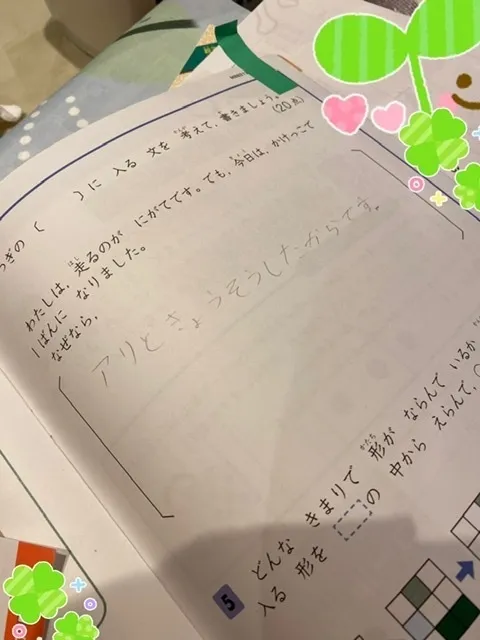 ぎの（　　）に 入る 文を 考えて、書きましょう。
(20点)
わたしは、走るのが にがてです。でも、今日は、かけっこで
1ばんに なりました。
なぜなら、
アリときょうそうしたからです。
5
どんな きまりで 形が ならんで いるか
入る 形を の 中から えらんで、